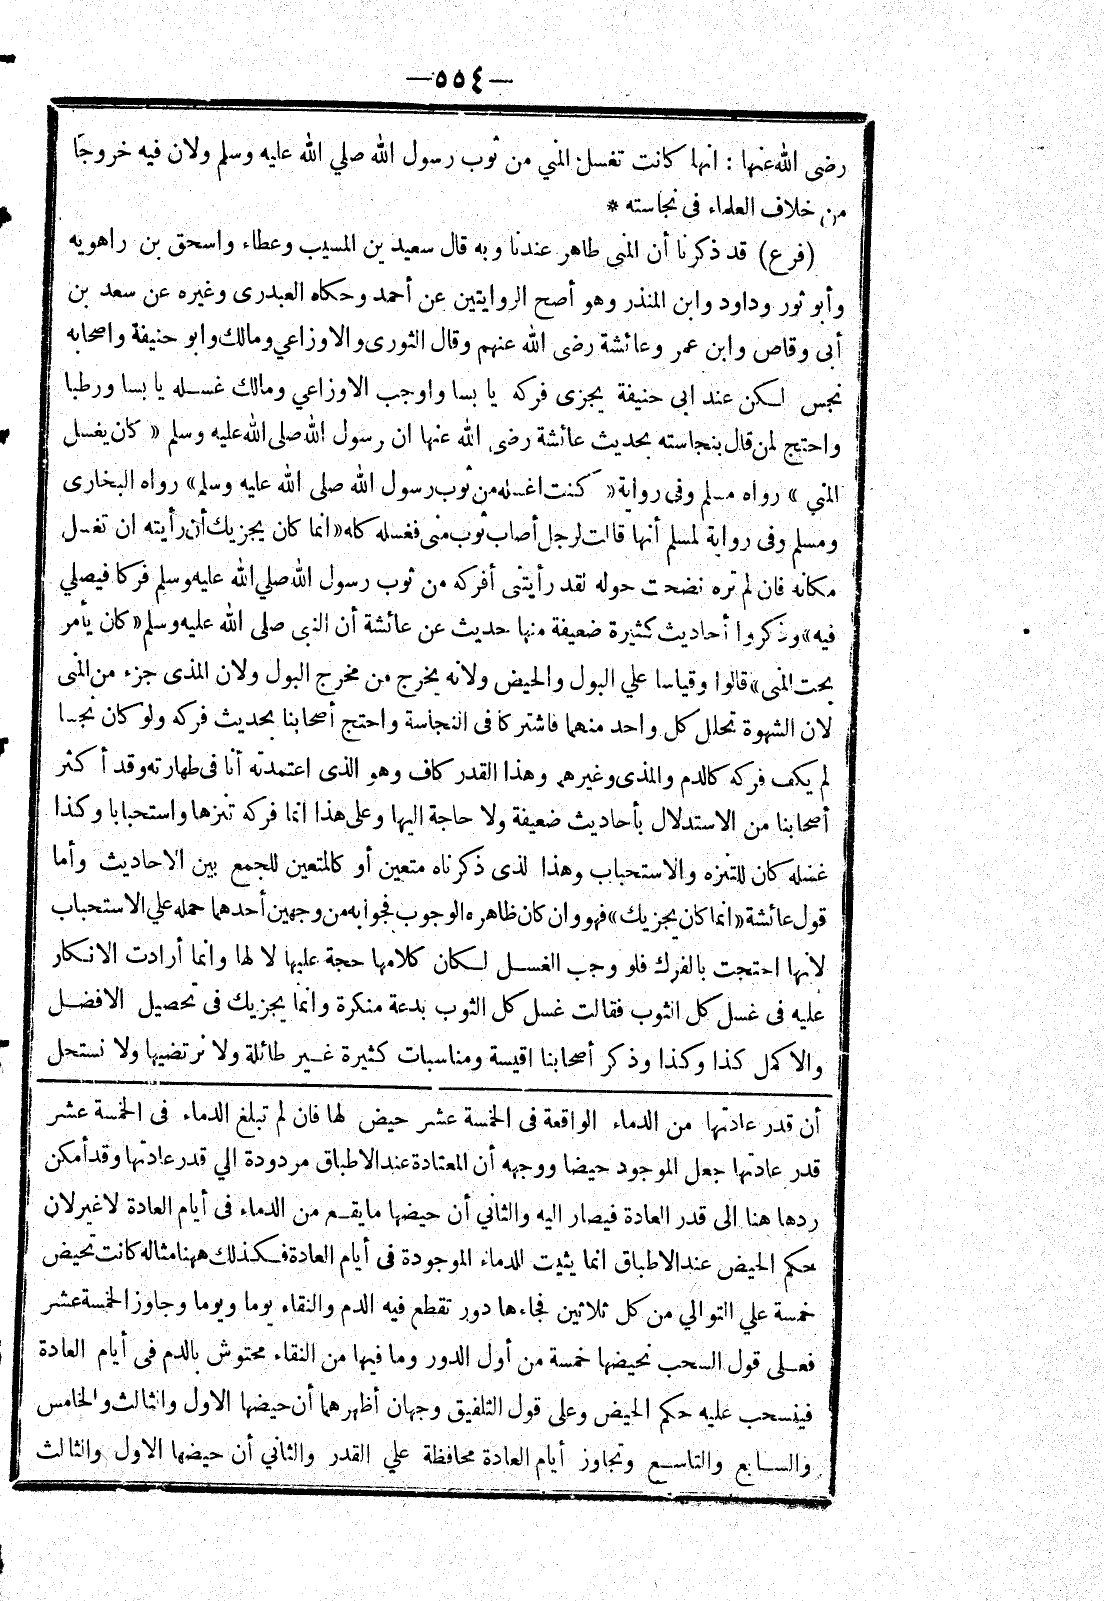 —٥٥٤—
رضى الله عنها : انها كانت تغسل المني من ثوب رسول الله صلي الله عليه وسلم ولان فيه خروجًا
من خلاف العلماء فى نجاسته *
(فرع) قد ذكرنا أن المني طاهر عندنا وبه قال سعيد بن المسيب وعطاء واسحق بن راهويه
وأبو ثور وداود وابن المنذر وهو أصح الروايتين عن أحمد وحكاه العبدرى وغيره عن سعد بن
أبى وقاص وابن عمر وعائشة رضى الله عنهم وقال الثورى والاوزاعي ومالك وابو حنيفة واصحابه
نجس لكن عند ابى حنيفة يجزى فركه يابسا واوجب الاوزاعي ومالك غسله يابسا ورطبا
واحتج لمن قال بنجاسته بحديث عائشة رضى الله عنها ان رسول الله صلى الله عليه وسلم « كان يغسل
المني » رواه مسلم وفى رواية « كنت اغسله من ثوب رسول الله صلى الله عليه وسلم» رواه البخارى
ومسلم وفى رواية لمسلم أنها قالت لرجل أصاب ثوب منى فغسله كله «انما كان يجزيك أن رأيته ان تغسل
مكانه فان لم تره نضحت حوله لقد رأيتنى أفركه من ثوب رسول الله صلي الله عليه وسلم فركا فيصلي
فيه» وذكروا أحاديث كثيرة ضعيفة منها حديث عن عائشة أن النبى صلى الله عليه وسلم «كان يأمر
بحت المنى» قالوا وقياسا علي البول والحيض ولانه يخرج من مخرج البول ولان المذى جزء من المنى
لان الشهوة تحلل كل واحد منهما فاشتركا فى النجاسة واحتج أصحابنا بحديث فركه ولو كان نجسا
لم يكف فركه كالدم والمذى وغيرهما وهذا القدر كاف وهو الذى اعتمدته أنا فى طهارته وقد أكثر
أصحابنا من الاستدلال بأحاديث ضعيفة ولا حاجة اليها وعلى هذا انما فركه تنزها واستحبابا وكذا
غسله كان للتنزه والاستحباب وهذا الذى ذكرناه متعين أو كالمتعين للجمع بين الاحاديث وأما
قول عائشة «انما كان يجزيك» فهو وان كان ظاهره الوجوب فجوابه من وجهين أحدهما حمله علي الاستحباب
لانها احتجت بالفرك فلو وجب الغسل لكان كلامها حجة عليها لا لها وانما أرادت الانكار
عليه فى غسل كل الثوب فقالت غسل كل الثوب بدعة منكرة وانما يجزيك فى تحصيل الافضل
والاكمل كذا وكذا وذكر أصحابنا اقيسة ومناسبات كثيرة غير طائلة ولا نرتضيها ولا نستحل
أن قدر عادتها من الدماء الواقعة فى الخمسة عشر حيض لها فان لم تبلغ الدماء فى الخمسة عشر
قدر عادتها جعل الموجود حيضا ووجهه أن المعتادة عند الاطباق مردودة الي قدر عادتها وقد أمكن
ردها هنا الى قدر العادة فيصار اليه والثاني أن حيضها ما يقع من الدماء فى أيام العادة لا غير لان
حكم الحيض عند الاطباق انما يثبت للدماء الموجودة فى أيام العادة فكذلك ههنا مثاله كانت تحيض
خمسة علي التوالي من كل ثلاثين فجاءها دور تقطع فيه الدم والنقاء يوما ويوما وجاوز الخمسة عشر
فعلى قول السحب نحيضها خمسة من أول الدور وما فيها من النقاء محتوش بالدم فى أيام العادة
فينسحب عليه حكم الحيض وعلى قول التلفيق وجهان أظهرهما أن حيضها الاول والثالث والخامس
والسابع والتاسع وتجاوز أيام العادة محافظة علي القدر والثاني أن حيضها الاول والثالث